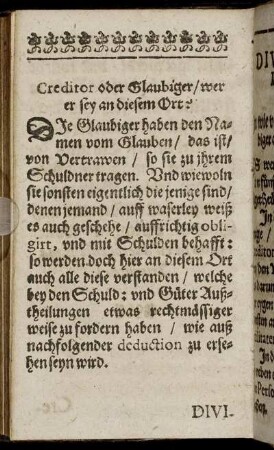 Creditor oder Glaubiger/wer
er sey an diesem Ort?
DJe Glaubiger haben den Na-
men vom Glauben/ das ist/
von Vertrawen/ so sie zu jhrem
Schuldner tragen. Vnd wiewoln
sie sonsten eigentlich die jenige sind/
denen jemand/ auff waserley weiß
es auch geschehe/ auffrichtig obli-
girt, vnd mit Schulden behafft:
so werden doch hier an diesem Ort
auch alle diese verstanden/ welche
bey den Schuld: vnd Güter Auß-
theilungen etwas rechtmässiger
weise zu fordern haben/ wie auß
nachfolgender deduction zu erse-
hen seyn wird.
DIVI-